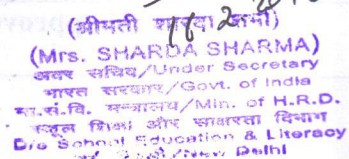 (श्रीमती शारदा शर्मा)
(Mrs. SHARDA SHARMA)
अवर सचिव/Under Secretary
भारत सरकार/Govt. of India
मा.सं.वि. मन्त्रालय/Min. of H.R.D.
स्कूल शिक्षा और साक्षरता विभाग
D/o School Education & Literacy
नई दिल्ली/New Delhi